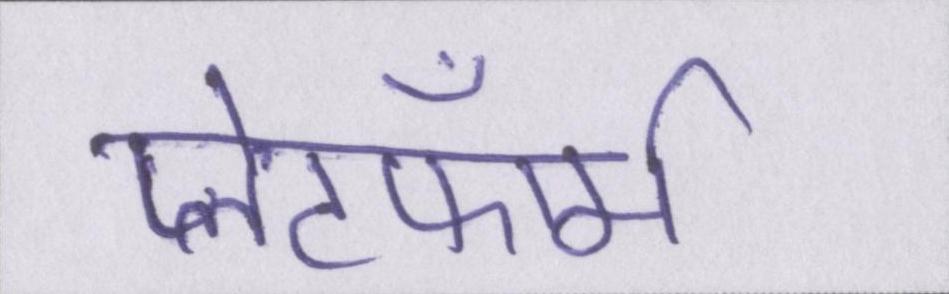 प्लेटफाँर्म